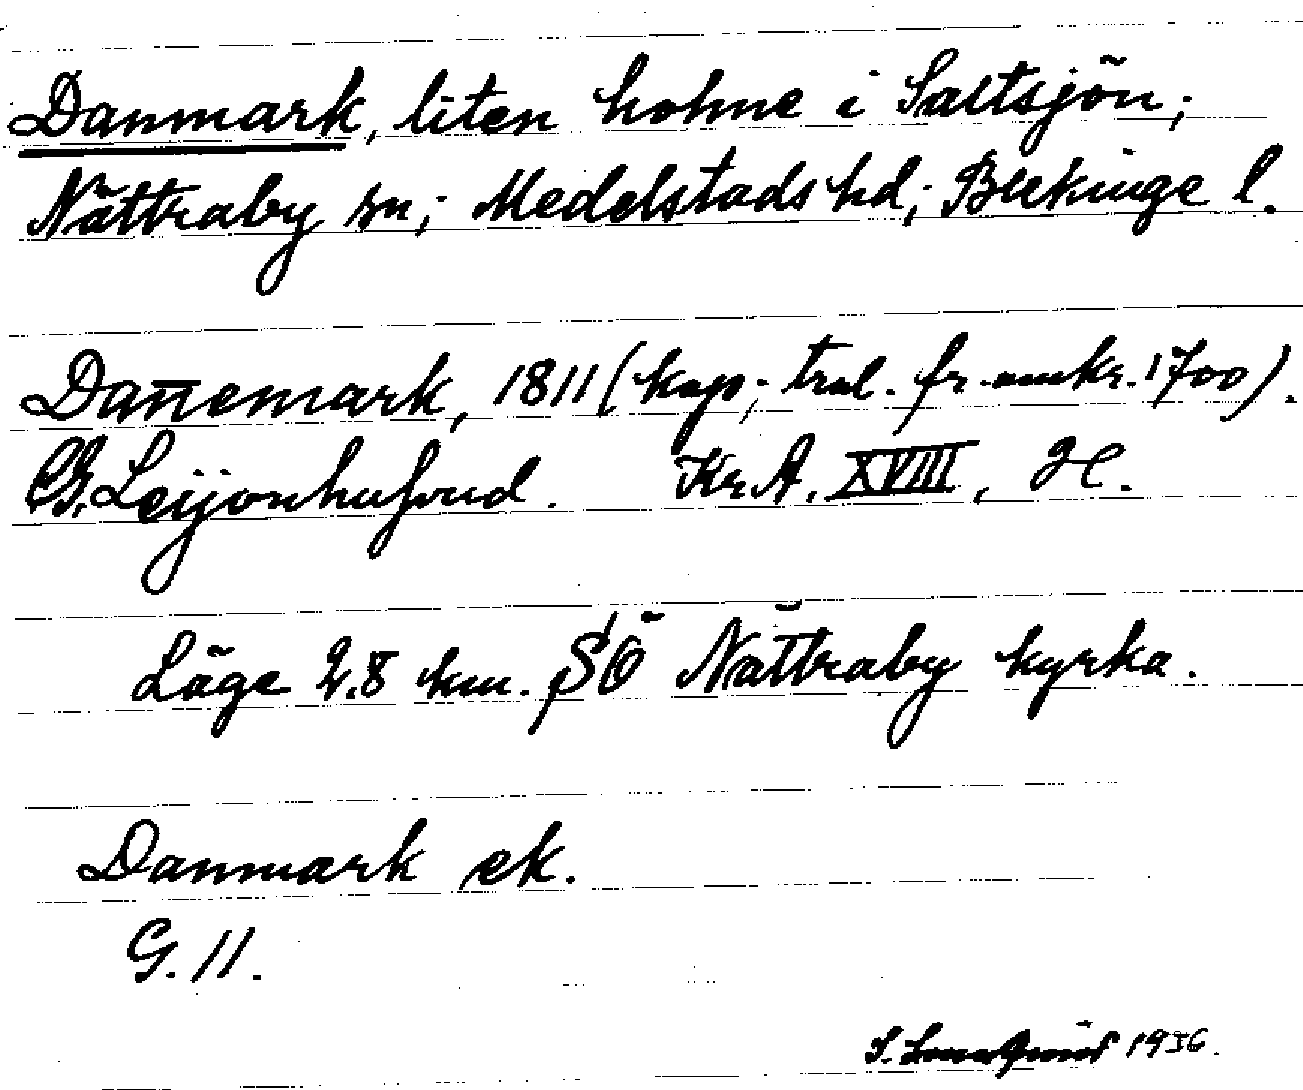 Danmark, liten holme i Saltsjön;
Nättraby sn; Medelstads hd; Blekinge l.
Dan̄emark, 1811 (kop; trol. fr. omkr. 1700).
G. Leijonhufvud. Kr. A. XVIII, H.
Läge 2.8 km. SÖ Nättraby kyrka.
Danmark ek.
G. 11.
1936.